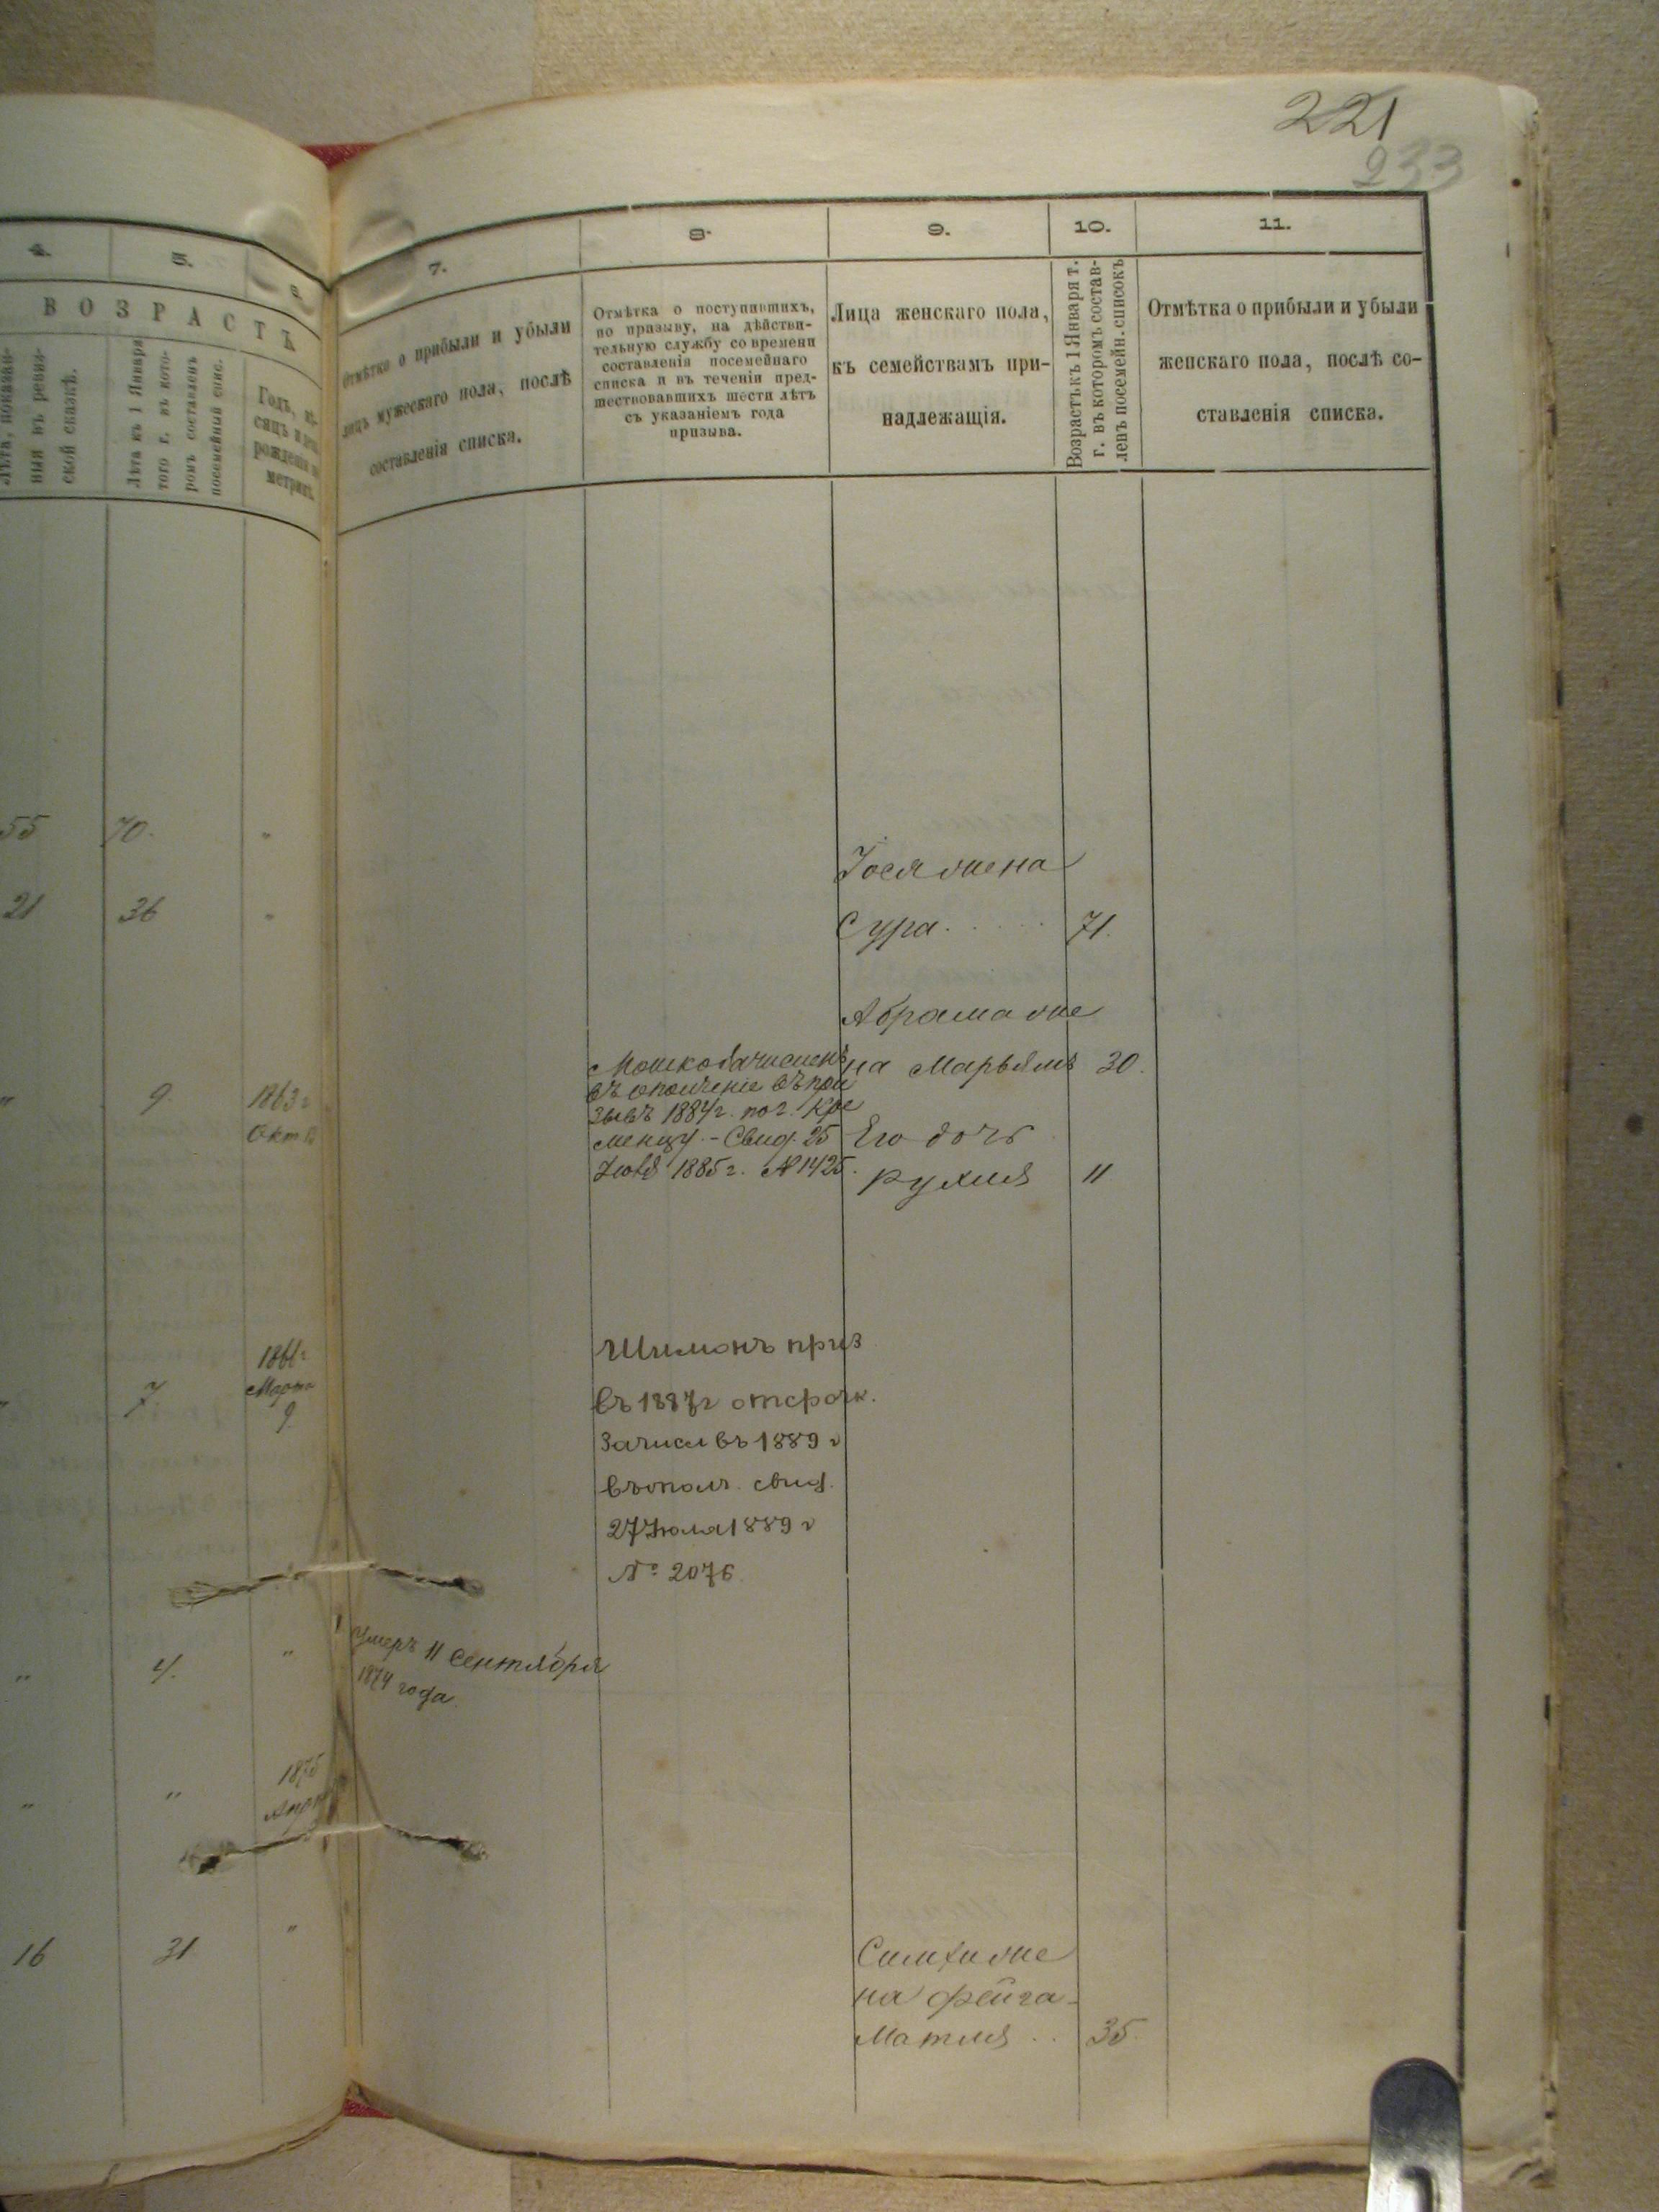 221
233
4.
5.
6.
ВОЗРАСТЪ
Лѣта, показан-
ныя въ ревиз-
ской сказкѣ.
Лѣта къ 1 Января
того г. въ кото-
ромъ составленъ
посемейный спис.
Годъ, мѣ-
сяцъ и
рожденія
метрик.
7.
Отмѣтка о прибыли и убыли
лицъ мужескаго пола, послѣ
составленія списка.
8.
Отмѣтка о поступившихъ,
по призыву, на дѣйстви-
тельную службу со времени
составленія посемейнаго
списка и въ теченіи пред-
шествовавшихъ шести лѣтъ
съ указаніемъ года
призыва.
9.
Лица женскаго пола,
къ семействамъ при-
надлежащія.
10.
Возрастъ къ 1 Января т.
г. въ которомъ состав-
ленъ посемейн. списокъ
11.
Отмѣтка о прибыли и убыли
женскаго пола, послѣ со-
ставленія списка.
55 70. "
21 36 "
Іося жена
Сура 71.
Абрама же
на Марьямъ 30.
Его дочь
Рухля 11
" 9. 1863 г
Окт
Мошко зачисленъ
въ ополченіе въ при
зывъ 1884 г. по г. Кре
менцу. - Свид. 25
1885 г. № 1425.
7 1866 г
Марта
9.
Шимонъ приз
въ 1887 г отсрочк.
Зачисл въ 1889 г
въ опол. свид.
27 Іюля 1889 г
№ 2076.
" 4. "
Умеръ 11 Сентября
1874 года.
" " 1875
16 31 "
Симхи же
на Фейга-
Матля .. 35.